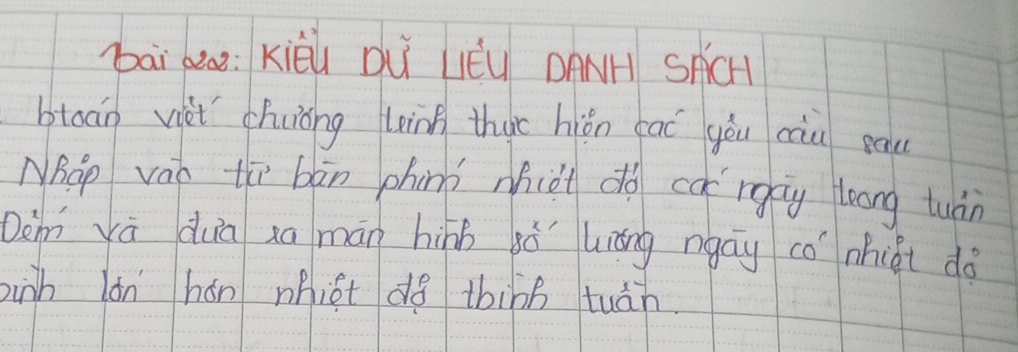 bài 22: KIỂU DỮ LIỆU DANH SÁCH
btoán viết chương trình thực hiện các yêu cầu sau
Nhập vào từ bàn phím nhiệt độ các ngày trong tuần
Đếm và đưa ra màn hình số lượng ngày có nhiệt độ
bình lớn hơn nhiệt độ tbình tuần.